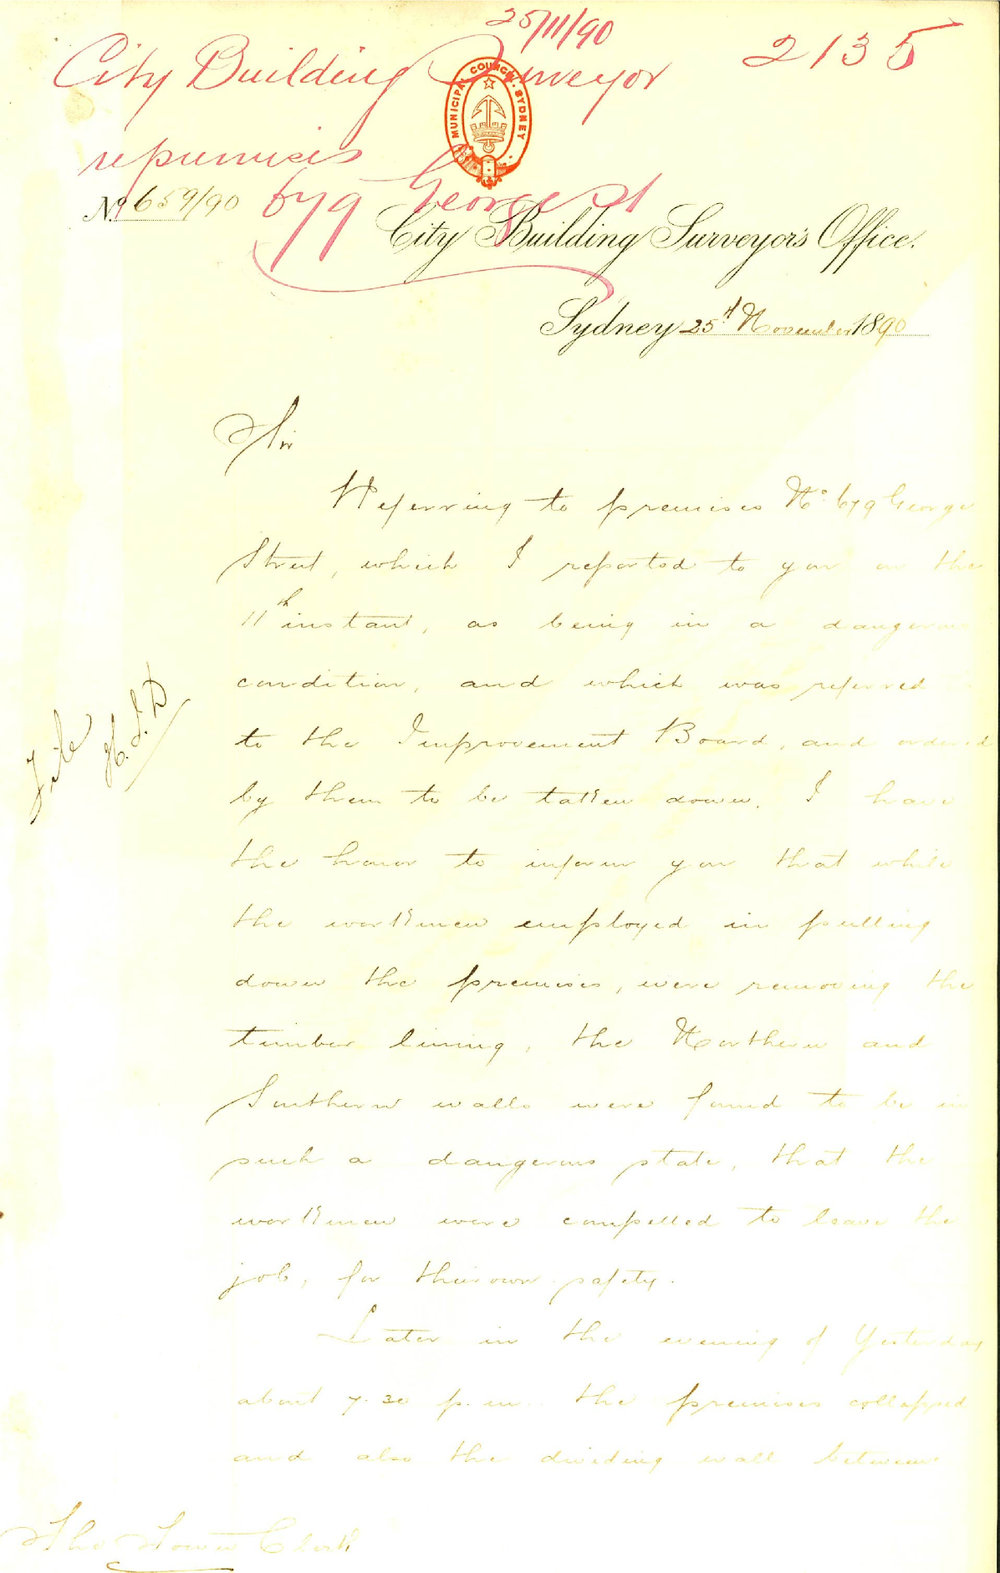 25/11/90
City Building Surveyor 2135
re premises
679 George St
MUNICIPAL COUNCIL SYDNEY
No 659/90
City Building Surveyor's Office.
Sydney 25th November 1890
Sir
Referring to premises No 679 George
Street, which I reported to you on the
11th instant, as being in a dangerous
condition, and which was referred
to the Improvement Board, and ordered
by them to be taken down. I have
the honor to inform you that while
the workmen employed in pulling
down the premises, were removing the
timber lining, the Northern and
Southern walls were found to be in
such a dangerous state, that the
workmen were compelled to leave the
job, for their own safety.
Later in the evening of Yesterday
about 7.30 p.m. the premises collapsed
and also the dividing wall between
The Town Clerk
File